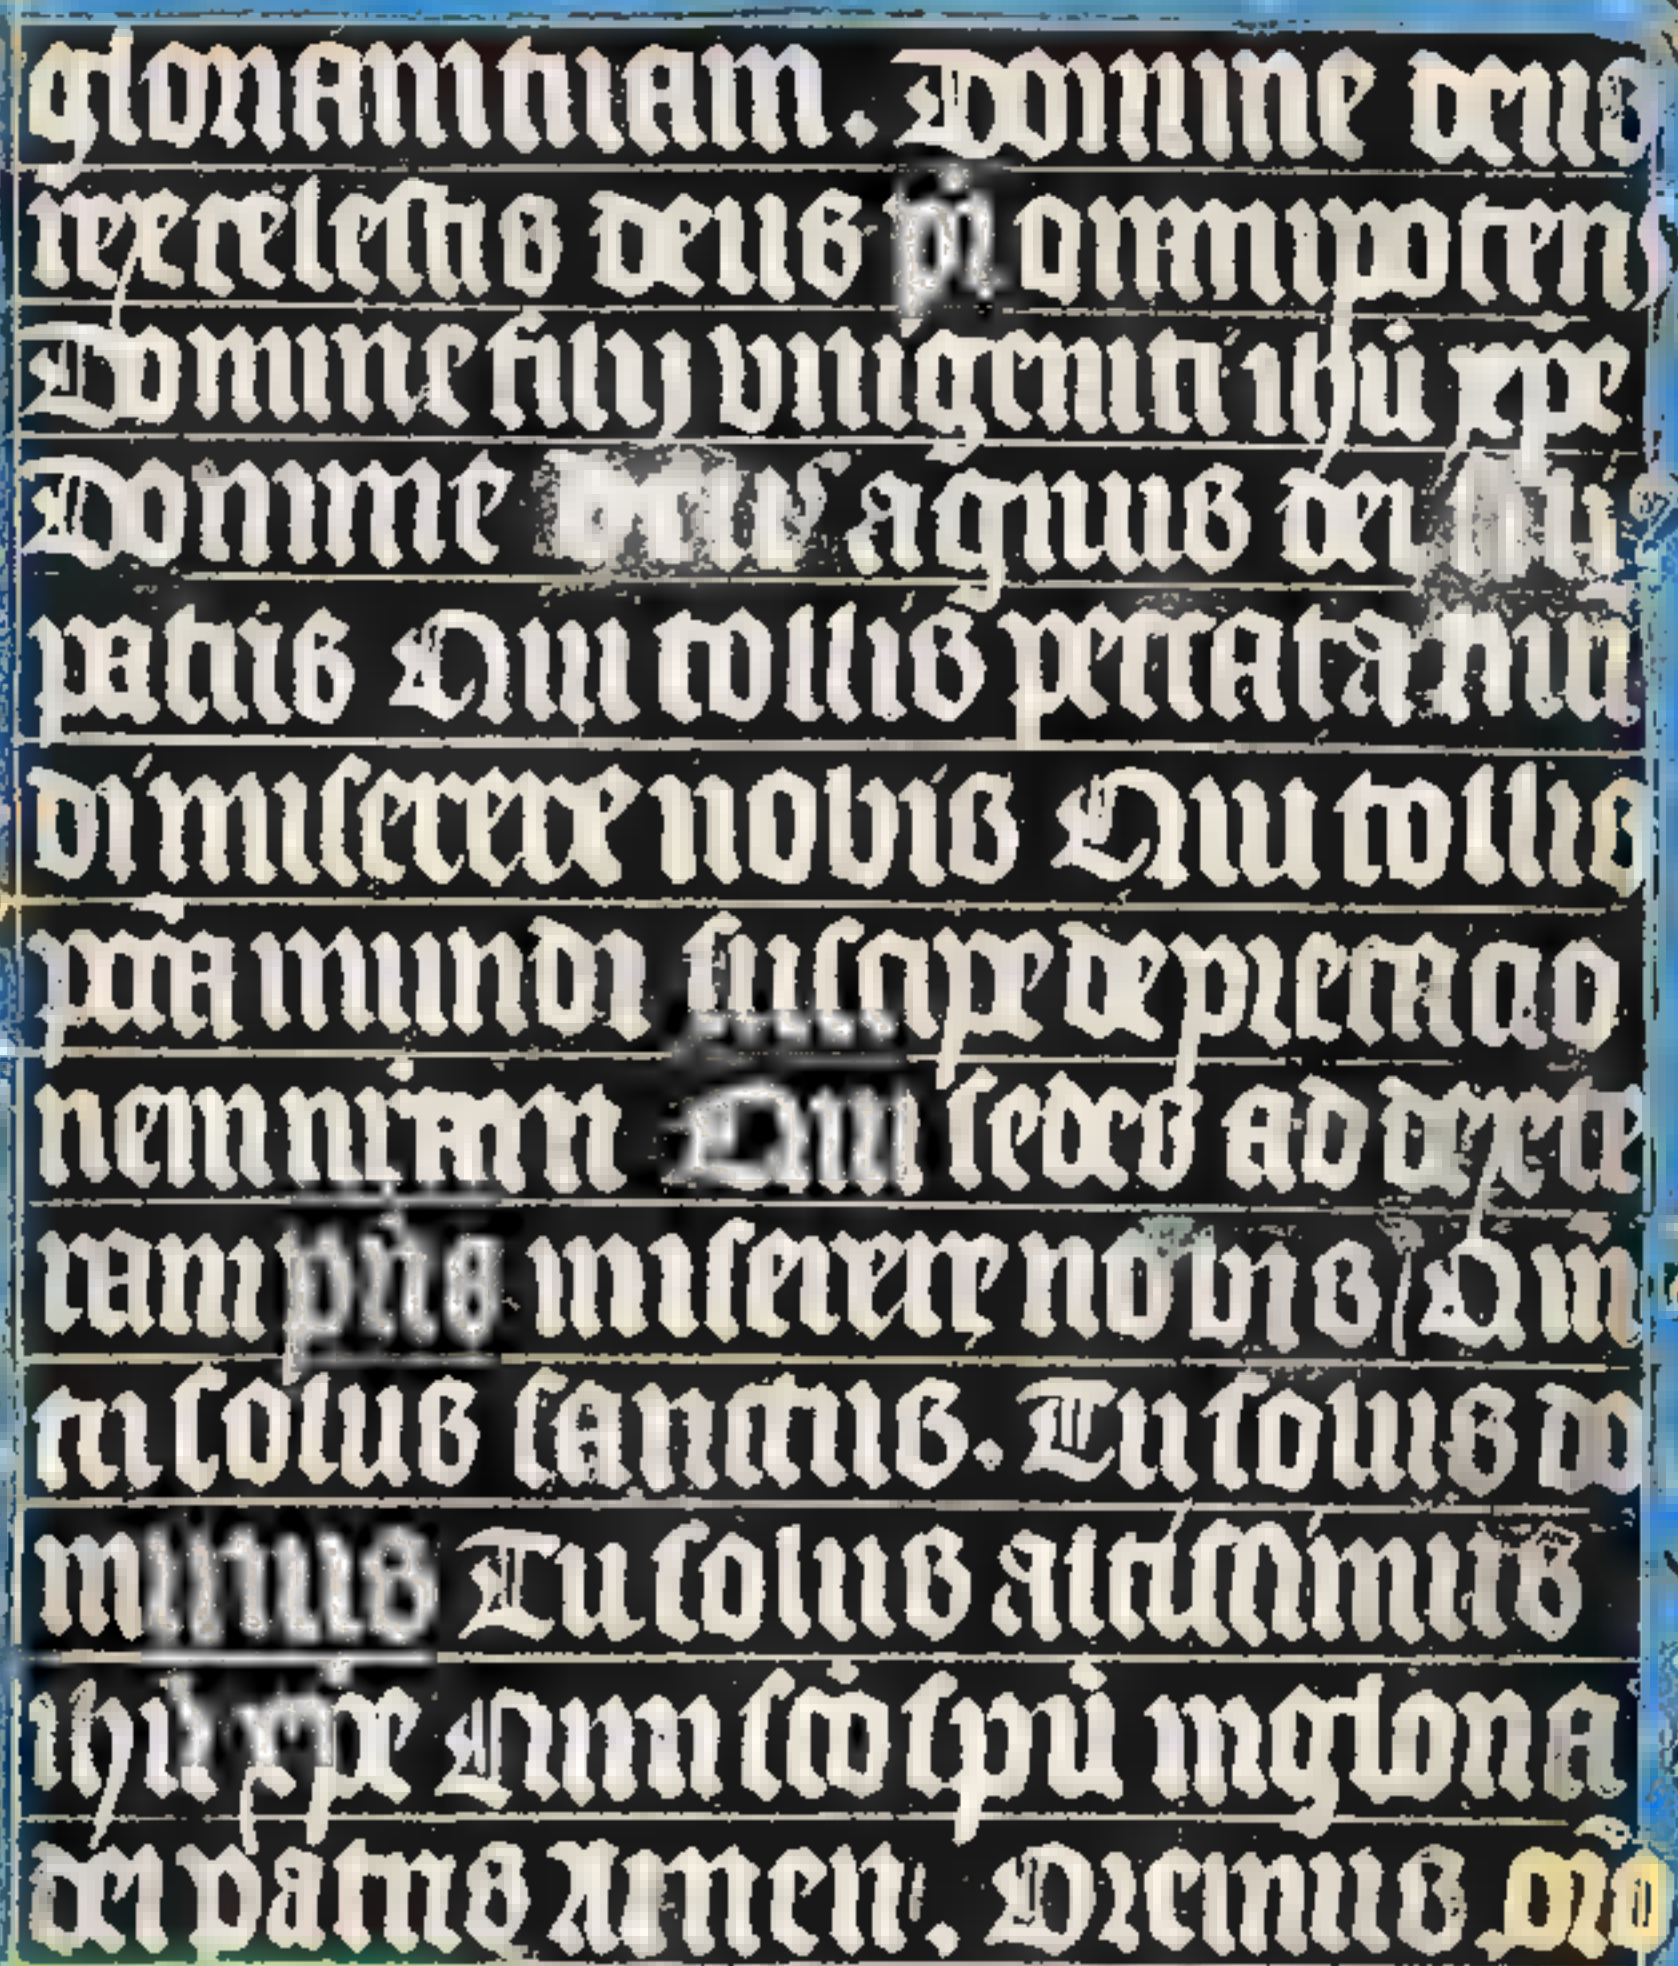 gloriam tuam. Domine deus
rex celestis deus pr̄ omnipotens
Domine fili vnigenita ihū xpe
Domine deus agnus dei fili
patris Qui tollis peccata mun
di miserere nobis Qui tollis
pccā mundi suscipe deprecatio
nem nr̄am Qui sedes ad dexte
ram pr̄is miserere nobis Qm̄
tu solus sanctus. Tu solus do
minus Tu solus altissimus
ihū xpe Cum scō spū in gloria
dei patris Amen. Oremus oro